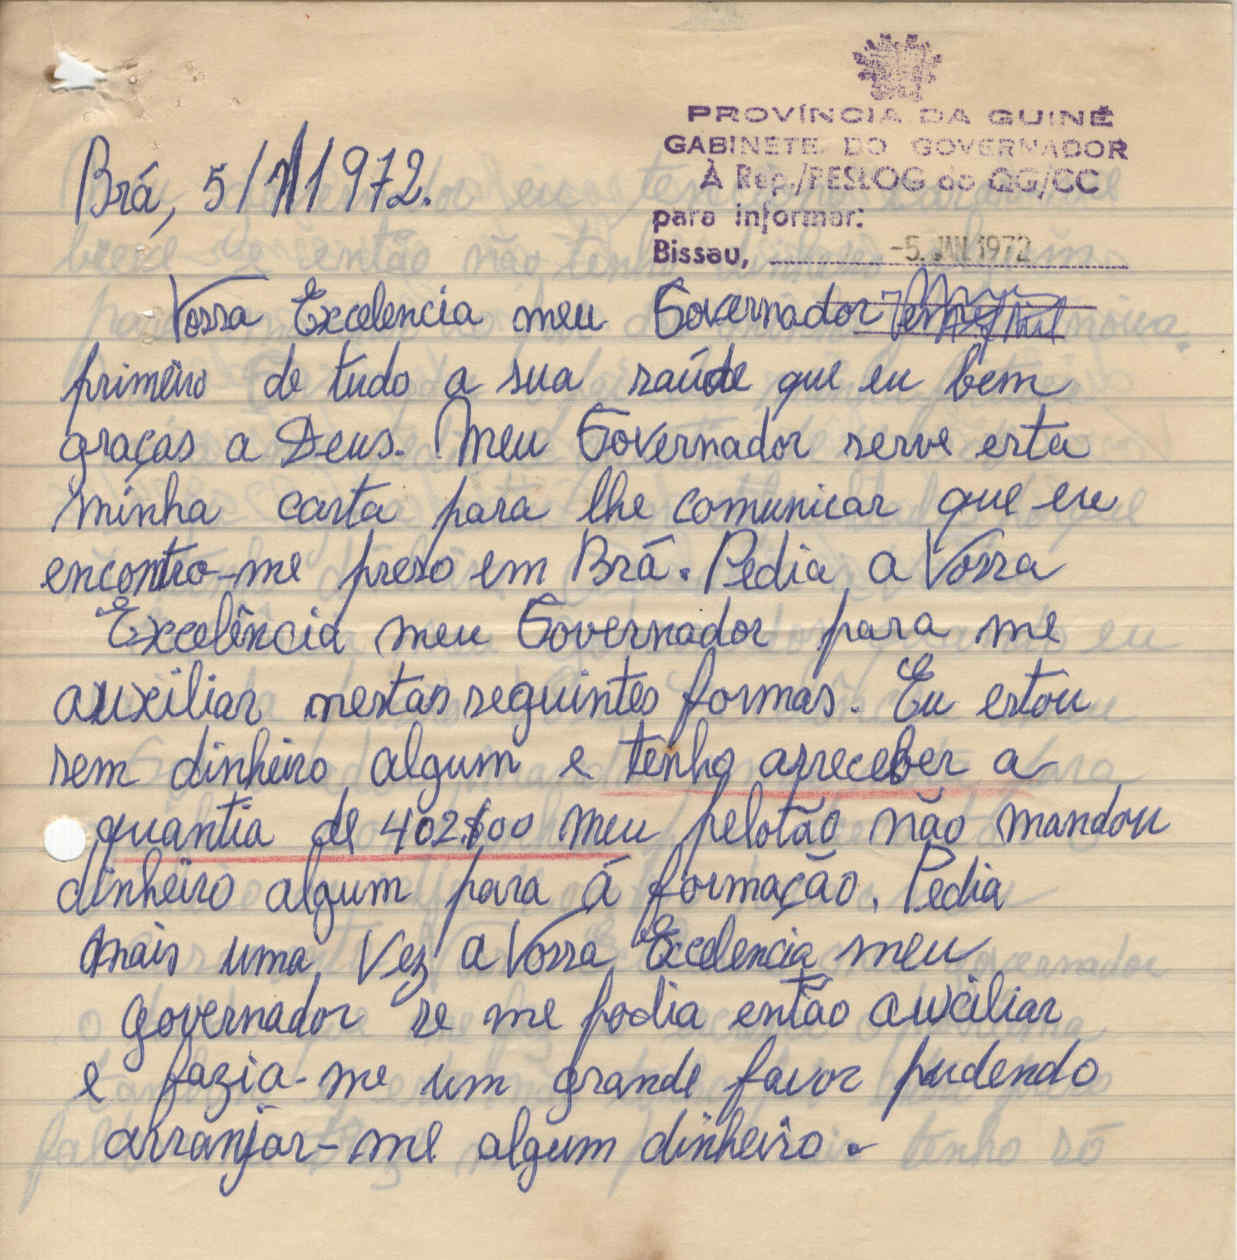 PROVÍNCIA DA GUINÉ
GABINETE DO GOVERNADOR
À Rep./PESLOG do QG/CC
para informar:
Bissau, -5. JAN 1972
Brá, 5/1/1972.
Vossa Excelencia meu Governador
primeiro de tudo a sua saúde que eu bem
graças a Deus. Meu Governador serve esta
minha carta para lhe comunicar que eu
encontro-me preso em Brá. Pedia a Vossa
Excelência meu Governador para me
auxiliar nestas seguintes formas. Eu estou
sem dinheiro algum e tenho arreceber a
quantia de 402$00 meu pelotão não mandou
dinheiro algum para á formação. Pedia
mais uma Vez a Vossa Excelencia meu
governador se me podia então auxiliar
e fazia-me um grande favor pudendo
arranjar-me algum dinheiro.